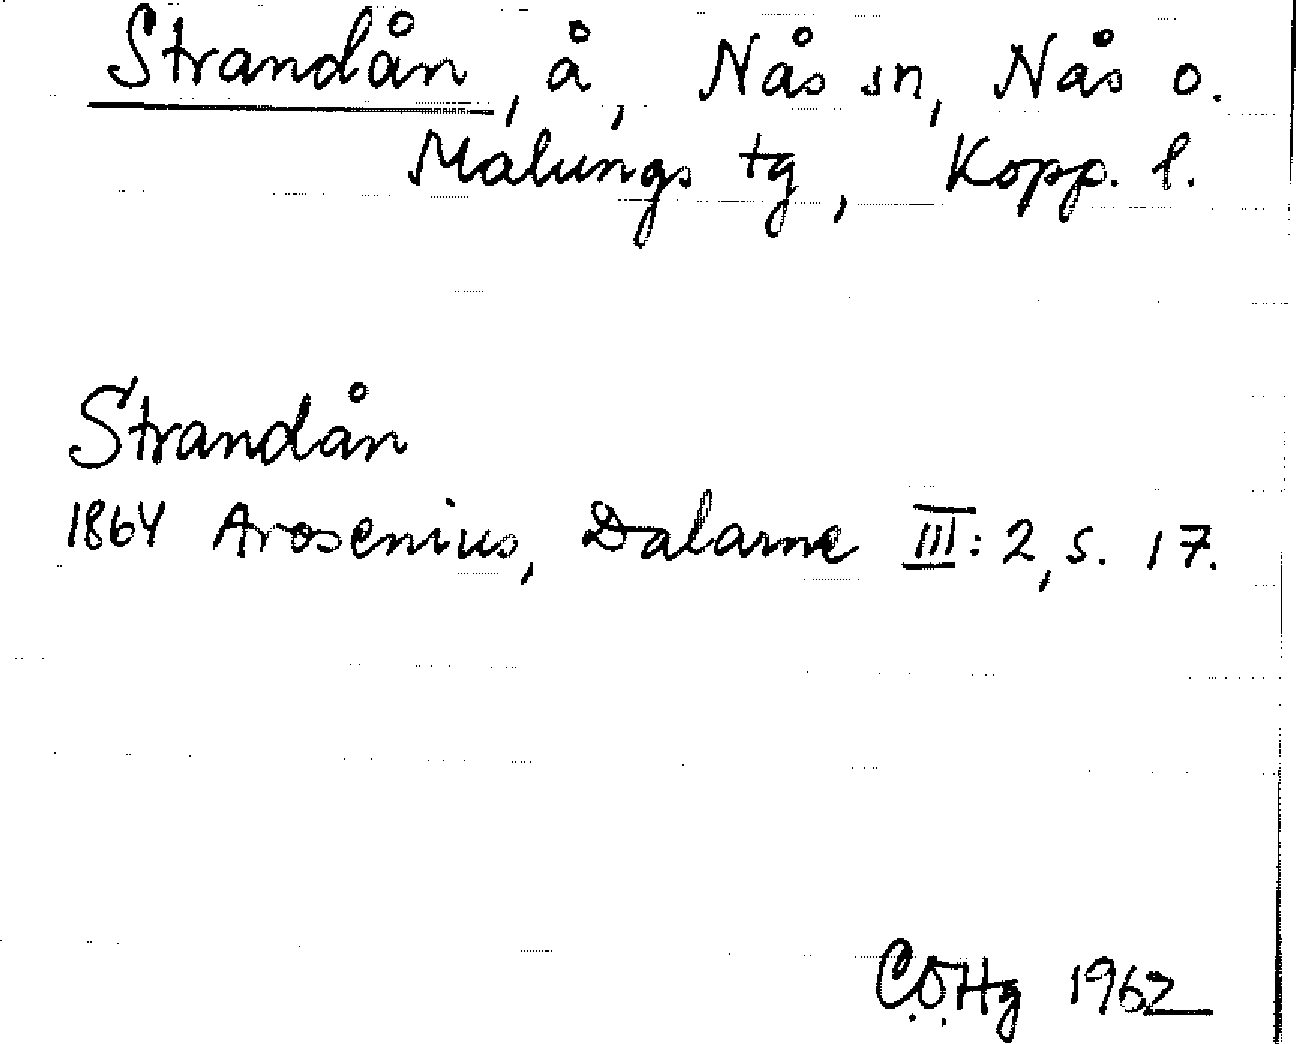 Strandån, å, Nås sn, Nås o.
Malungs tg, Kopp. l.
Strandån
1864 Arosenius, Dalarne III: 2, s. 17.
C.O.Hg 1962